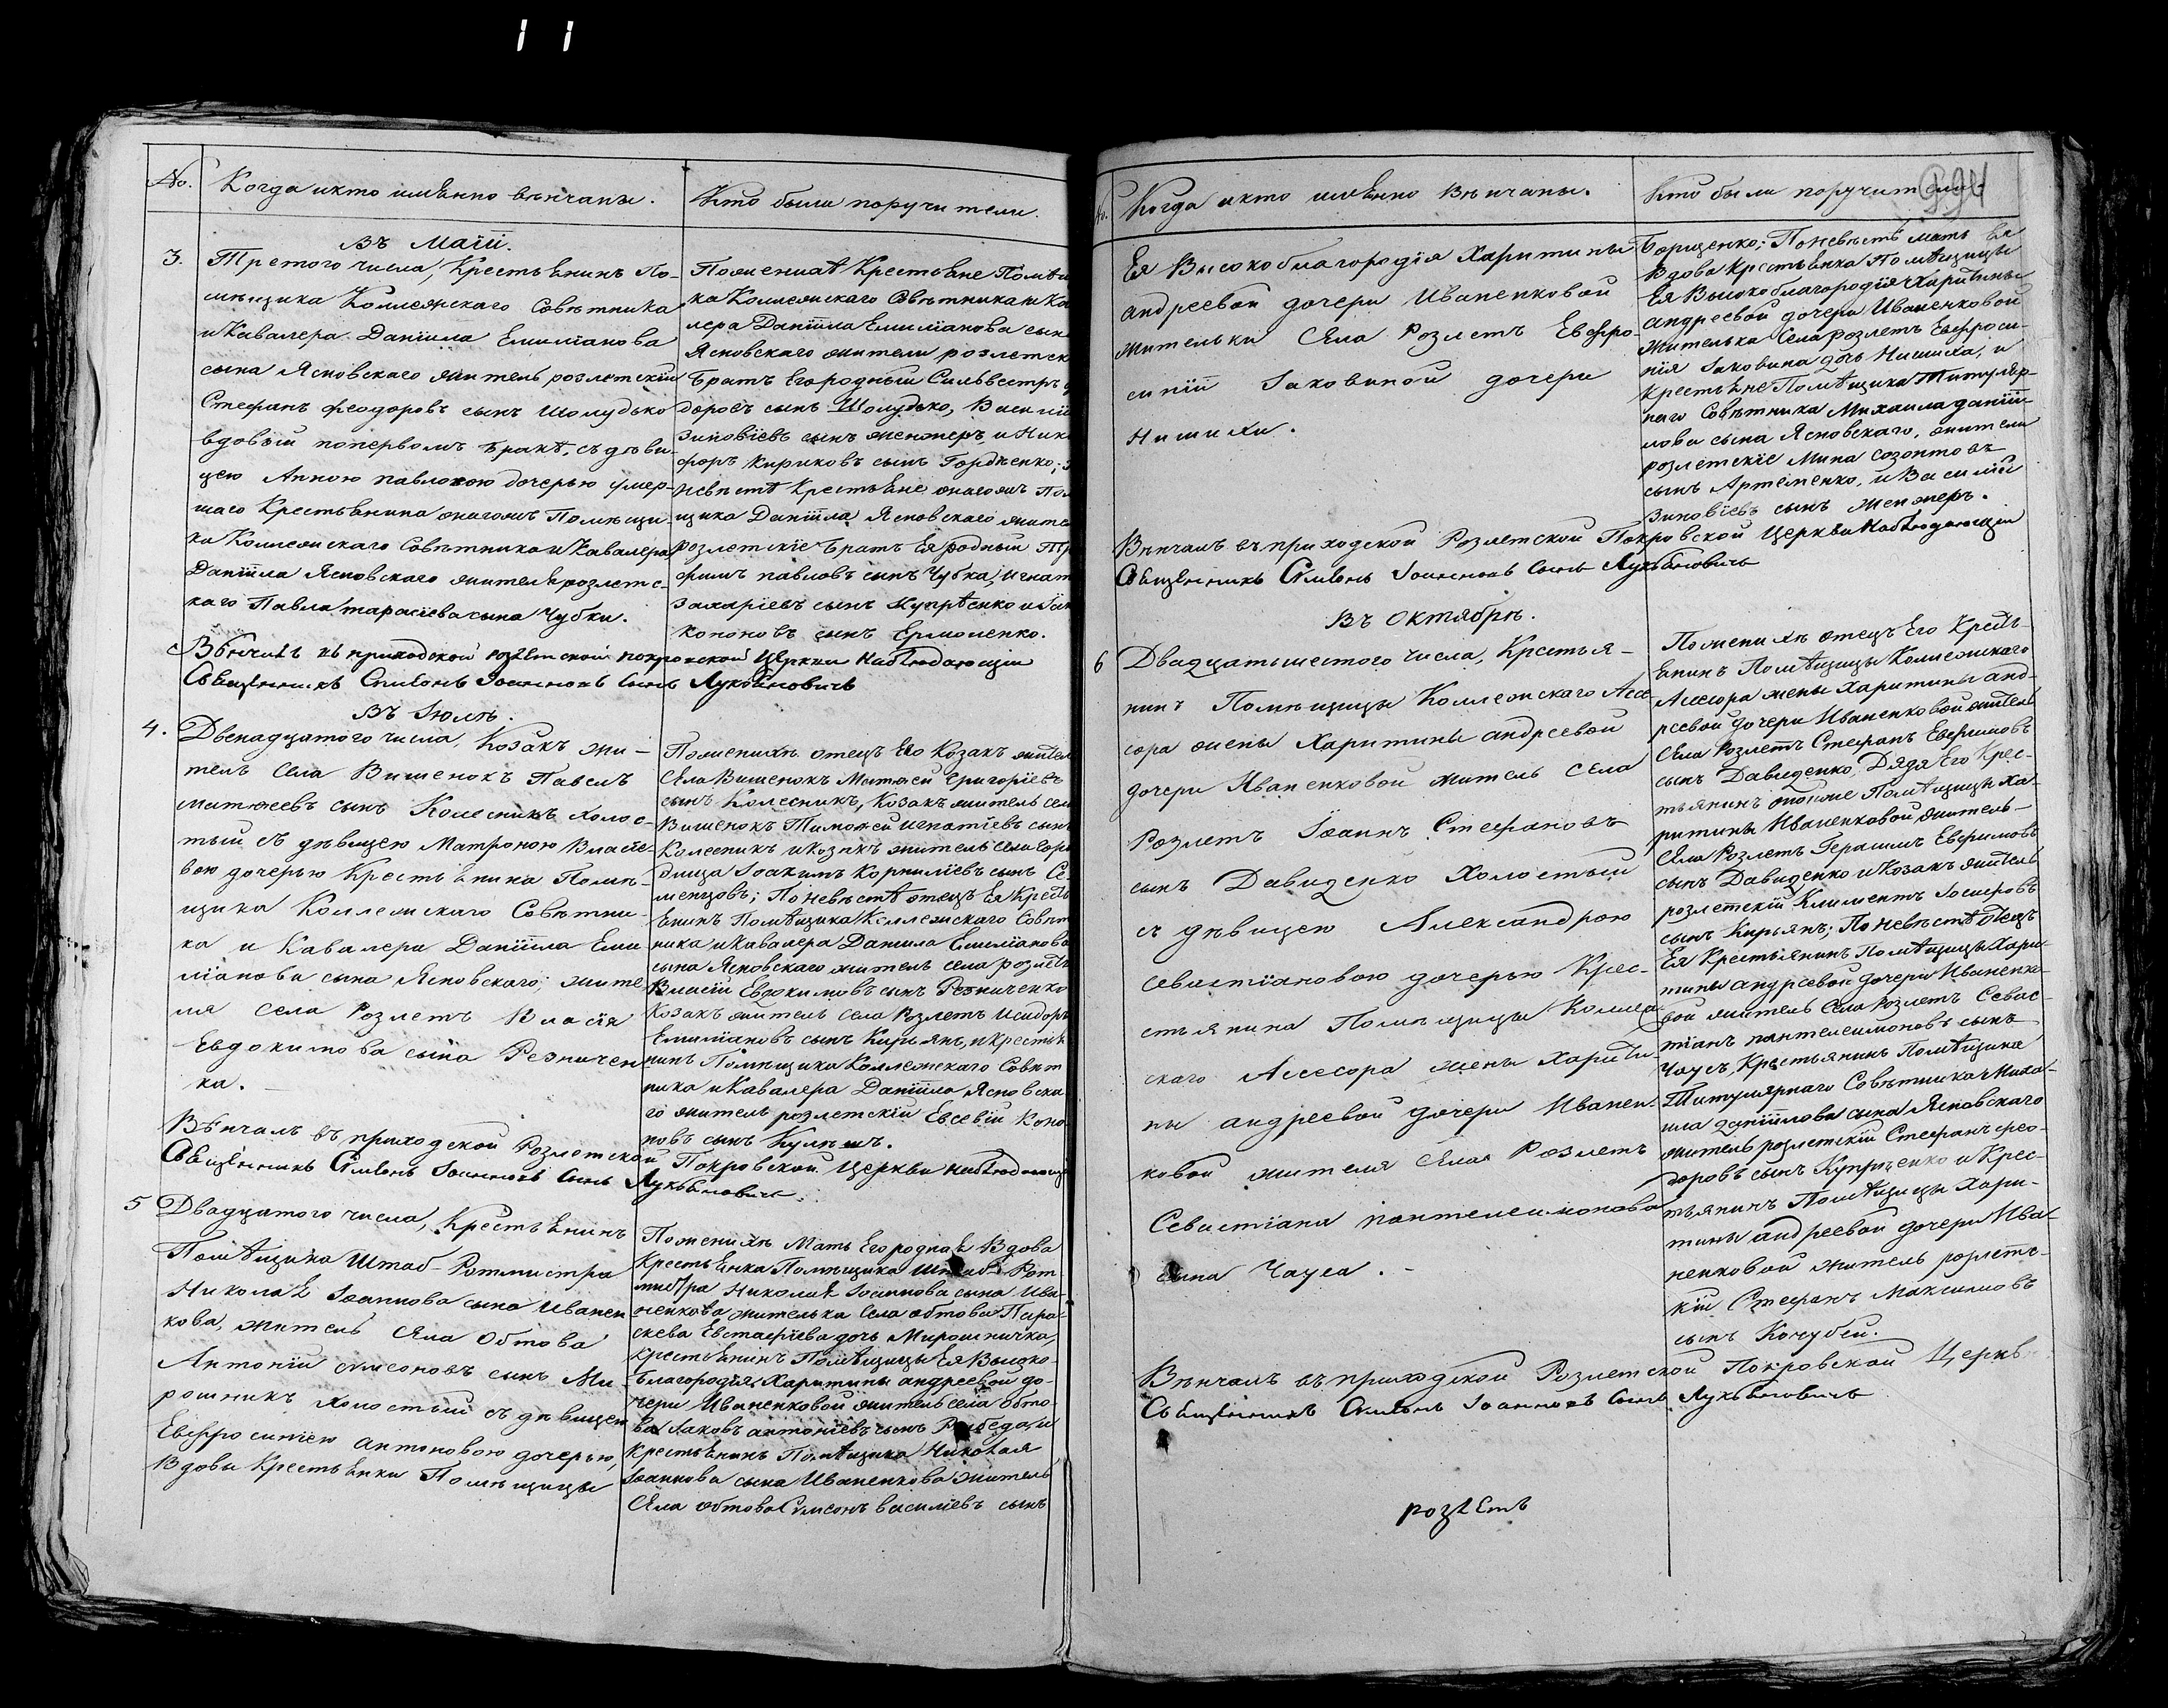 No.
Когда икто имѣнно вѣнчаны.
Кто были поручители.
Въ Маіи.
3.
Третого числа, Крестьѣнинъ По-
мѣщика Колежскаго Совѣтника
и Кавалера Даніила Емиліанова
сына Ясновскаго житель розлетскій
Стефанъ феодоровъ сынъ Шолудько
вдовый попервомъ бракѣ, съ дѣви-
цею Анною павловою дочерью умер-
шаго Крестьѣнина онагожъ Помѣщи-
ка Коллежскаго Совѣтника и Кавалера
Даніила Ясновскаго жителѣ розлетс-
каго Павла тарасіева сына Чубки.
Поженихѣ Крестьѣне Помѣщи
ка Коллежскаго Совѣтника и Ка
лера Даніила Емиліанова сын
Ясновскаго жители розлетск
Братъ Его родный Сильвестръ ф
доровъ сынъ Шолудько, Василій
Зиновіевъ сынъ женжеръ, и Ник
форъ Кириковъ сынъ Гордѣенко;
невѣстѣ Крестьѣне онагожъ Пом
щика Даніила Ясновскаго жите
розлетскіе Братъ Ея родный Тр
фимъ павловъ сынъ Чубка, Игнат
Захаріевъ сынъ Купрѣенко и
Кононовъ сынъ Ермоленко.
Вѣнчалъ въ приходской розлетской покровской Церкви Наблюдающій
Священникъ Сѵмеонъ Іоанновъ Сынъ Лукьяновичъ
Въ Іюлѣ.
4.
Двенадцатого числа, Козакъ жи-
тель села Вишенокъ Павелъ
матѳеевъ сынъ Колесникъ холос-
тый съ дѣвицею Матроною Власіе-
вою дочерью Крестьѣнина Помѣ-
щика Коллежскаго Совѣтни-
ка и Кавалера Даніила Еми
ліанова сына Ясновскаго; жите
ля села Розлетъ Власія
Евдокимова сына Резничен
ка.
Поженихѣ отецъ Его Козакъ жител
Села Вишенокъ Матѳей Григоріевъ
сынъ Колесникъ, Козакъ житель сел
Вишенокъ Тимоѳей игнатіевъ сынъ
Колесникъ и Козакъ житель села Горо
дища Іоакимъ Корниліевъ сынъ Се-
менцовъ; Поневѣстѣ отецъ Ея Кресть
ѣнинъ Помѣщика Коллежскаго Совѣт
ника и Кавалера Даніила Емиліанова
сына Ясновскаго житель села розлетъ
Власій Евдокимовъ сынъ Резниченко
Козакъ житель села Розлетъ Исидоръ
Емиліановъ сынъ Кирьянъ, и крестьѣ
нинъ Помѣщика Коллежскаго Совѣт
ника и Кавалера Даніила Ясновска
го житель розлетскій Евсевій Коно
новъ сынъ Кулѣшъ.
Вѣнчалъ въ приходской Розлетской Покровской Церкви Наблюдающій
Священникъ Сѵмеонъ Іоанновъ Сынъ Лукьяновичъ.
5
Двадцатого числа, Крестьѣнинъ
Помѣщика Штаб-Ротмистра
Николаѣ Іоаннова сына Иванен
кова, житель Села Обтова
Антоній сѵмеоновъ сынъ Ми-
рошникъ холостый съ дѣвицею
Евфросиніею антоновою дочерью,
Вдовы Крестьѣнки Помѣщицы
Поженихѣ Мать Его роднаѣ Вдова
Крестьѣнка Помѣщика Штаб-Рот-
мистра Николаѣ Іоаннова сына Ива-
ненкова жителька села обтова Пара-
скева Евстафіева дочь Мирошничка,
крестьѣнинъ Помѣщицы Ея Высоко-
благородія Харитины андреевой до-
чери Иваненковой житель села обто-
ва Іаковъ антоніевъ сынъ и
Крестьѣнинъ Помѣщика Николая
Іоаннова сына Иваненкова житель
Села обтова Сѵмеонъ василіевъ сынъ
Когда икто имѣнно Вѣнчаны.
Кто были поручители
994
Ея Высокоблагородія Харитины
андреевой дочери Иваненковой
жительки Села Розлетъ Евфро-
синіи Іаковиной дочери
Нишихи.
Борщенко; Поневѣстѣ мать Ея
Вдова крестьѣнка Помѣщицы
Ея Высокоблагородія Харитины
андреевой дочери Иваненковой
жителька Села розлетъ Евфроси-
нія Іаковина дочь Нишиха, и
крестьѣне Помѣщика Титуляр-
наго Совѣтника Михаила даніи-
лова сына Ясновскаго, жители
розлетскіе Мина созонтовъ
сынъ Артеменко, и Василій
Зиновіевъ сынъ Женжеръ.
Вѣнчалъ въ приходской Розлетской Покровской Церкви Наблюдающій
Священникъ Сѵмеонъ Іоанновъ Сынъ Лукьяновичъ
Въ Октябрѣ.
6
Двадцатьшестого числа, Крестья-
нинъ Помѣщицы Коллежскаго Ассе-
сора жены Харитины андреевой
дочери Иваненковой житель села
Розлетъ Іоаннъ Стефановъ
сынъ Давиденко Холостый
съ дѣвицею Александрою
севастіановою дочерью Крес-
стьянина Помѣщицы Коллеж
скаго Ассесора жены Харити-
ны андреевой дочери Иванен-
ковой жителя Села Розлетъ
Севастіана пантелеимонова
сына Чауса.
Поженихѣ отецъ Его Кресть-
ѣнинъ Помѣщицы Коллежскаго
Ассесора жены Харитины анд-
реевой дочери Иваненковой житель
Села Розлетъ Стефанъ Евфимовъ
сынъ Давиденко, Дядя Его Крес-
тьянинъ тоѣже Помѣщицы Ха-
ритины Иваненковой житель
Села Розлетъ Герасимъ Евфимовъ
сынъ Давиденко и Козакъ житель
розлетскій Климентъ Іосифовъ
сынъ Кирьянъ; Поневѣстѣ Отецъ
Ея Крестьянинъ Помѣщицы Хари
тины андреевой дочери Иваненко-
вой житель Села Розлетъ Севас-
тіанъ пантелеимоновъ сынъ
Чаусъ, Крестьянинъ Помѣщика
Титулярнаго Совѣтника Миха-
ила даніилова сына Ясновскаго
житель розлетскій Стефанъ фео-
доровъ сынъ Купрѣенко и Крес-
тьянинъ Помѣщицы Хари-
тины андреевой дочери Ива-
ненковой житель розлетс-
кій Стефанъ Максимовъ
сынъ Кочубей.
Вѣнчалъ въ приходской Розлетской Покровской Церкв
Священникъ Сѵмеонъ Іоанновъ Сынъ Лукьяновичъ
розлетъ